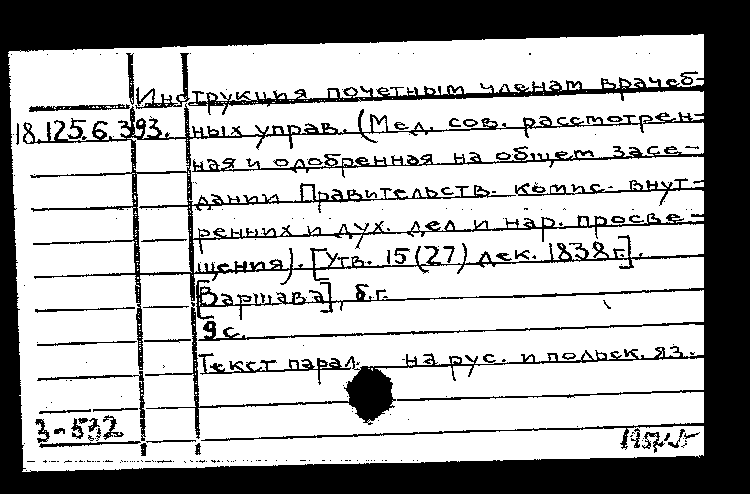 Инструкция почетным членам врачеб-
18.125.6.393. ных управ. (Мед. сов. рассмотрен-
ная и одобренная на общем засе-
дании Правительств. комис. внут-
ренних и дух. дел и нар. просве-
щения). [Утв. 15(27) дек. 1838 г.].
[Варшава], б.г.
9 с.
Текст парал. на рус. и польск. яз.
3-532